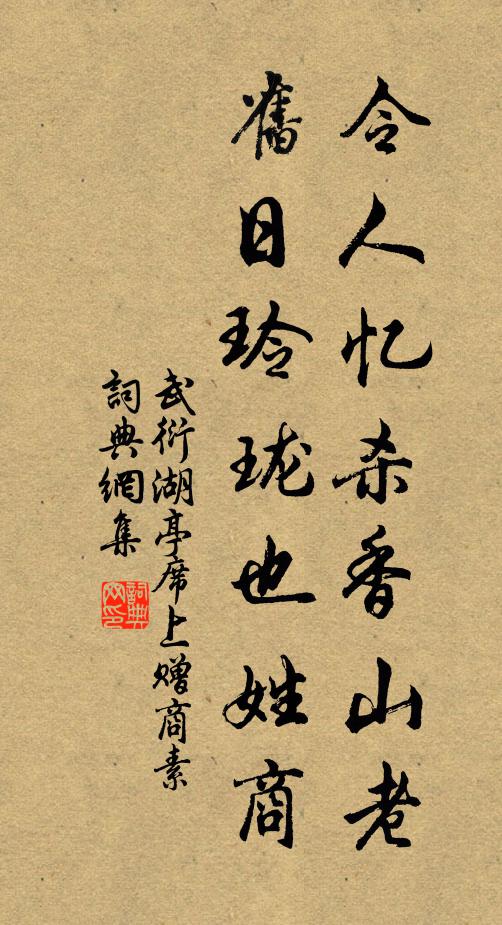 令人忆杀香山老
舊日玲珑也姓商
武衍湖亭席上赠商素
詞典網集
詞典網印